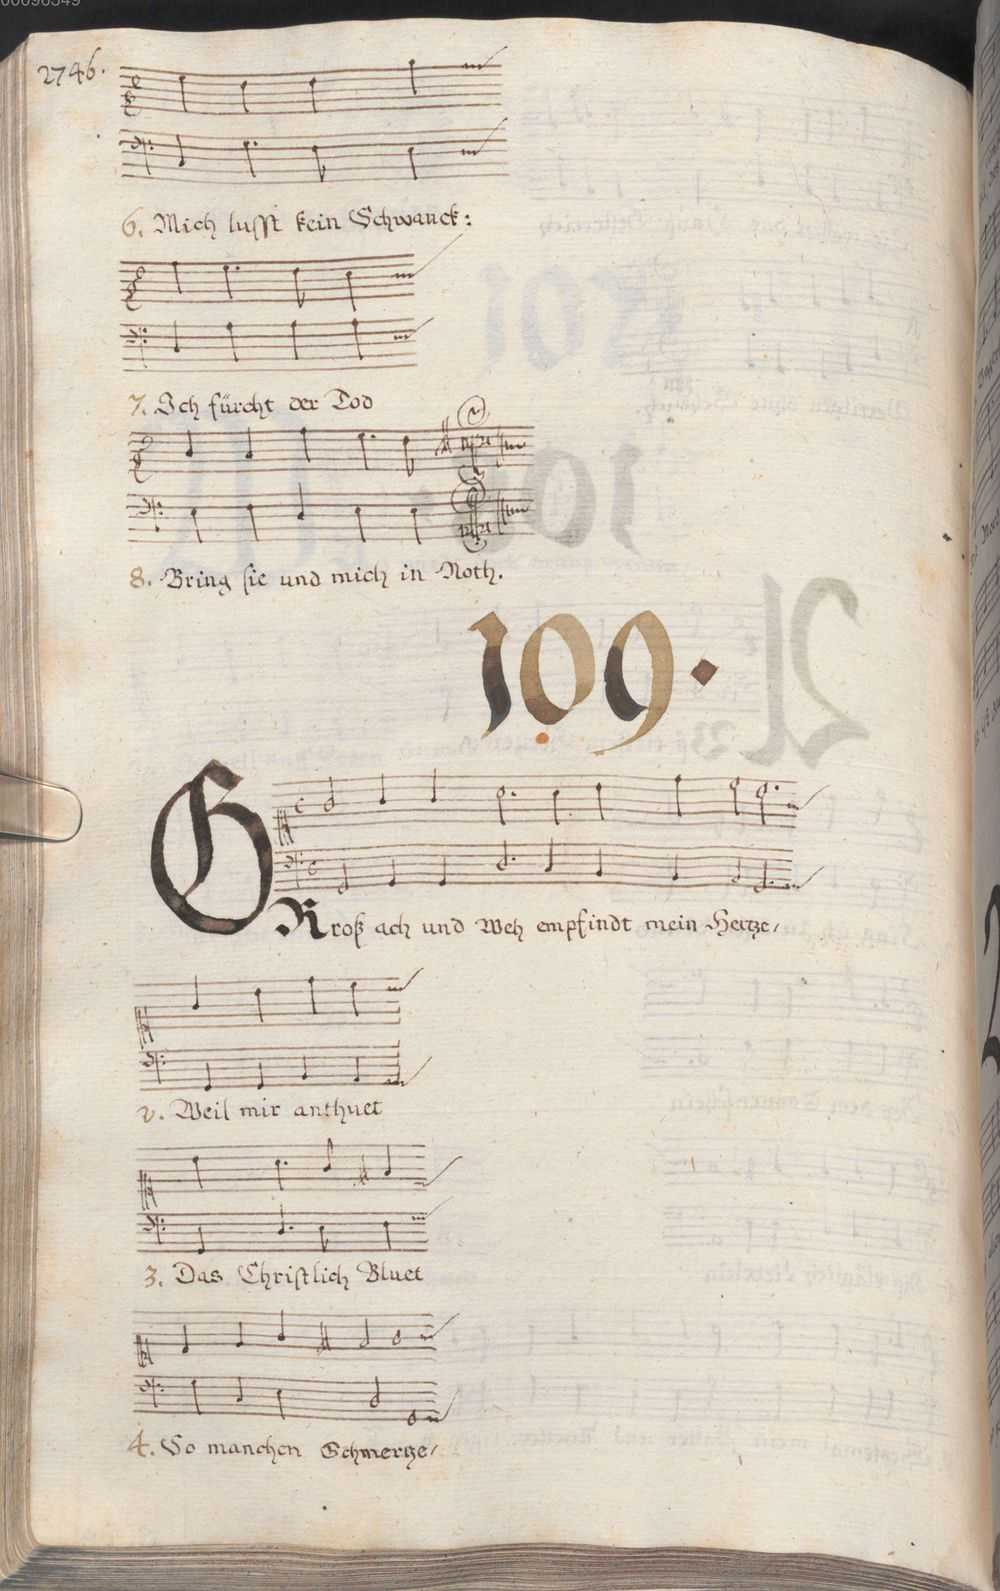 00096349
2746.
6. Mich lusst kein Schwanck:
7. Ich fürcht der Tod
8. Bring sie und mich in Noth.
109.
GRoß ach und Weh empfindt mein Hertze/
2. Weil mir anthuet
3. Das Christlich Bluet
4. So manchen Schmertze/